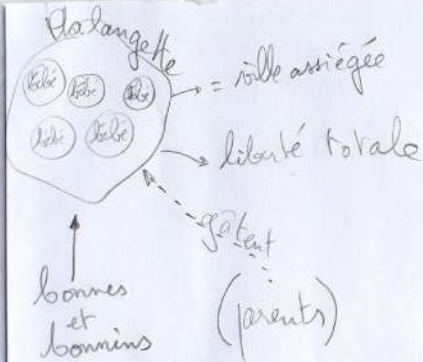 Halangette
bébé bébé bébé
bébé bébé
= ville assiégée
liberté totale
gâtent
bonnes
et
bonnins
(parents)